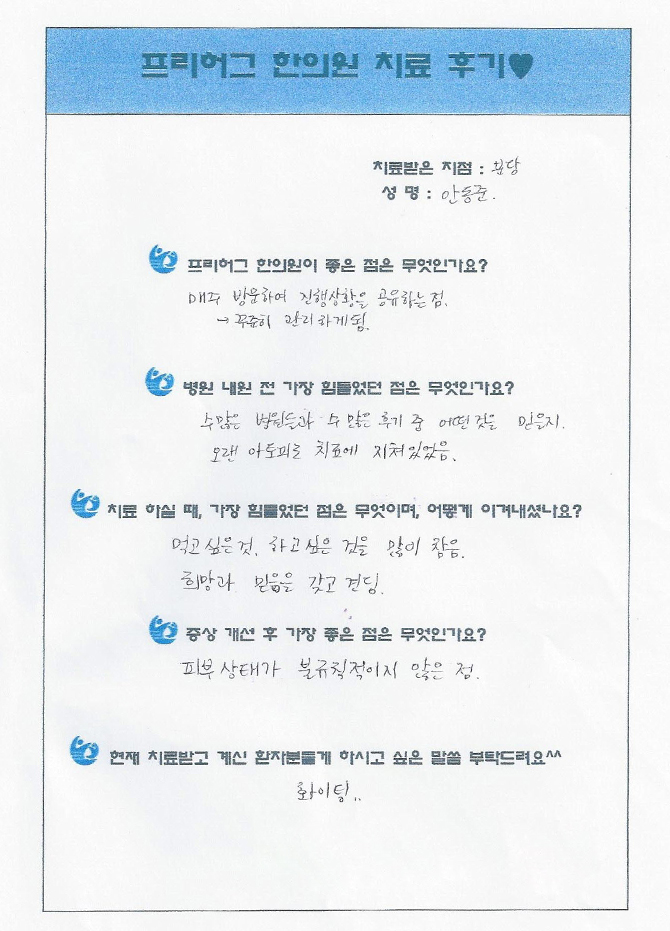 프리허그 한의원 치료 후기♥
치료받은 지점 : 분당
성 명 : 안동준.
프리허그 한의원이 좋은 점은 무엇인가요?
매주 방문하여 진행상황을 공유하는 점.
→ 꾸준히 관리하게 됨.
병원 내원 전 가장 힘들었던 점은 무엇인가요?
수많은 병원들과 수 많은 후기 중 어떤 것을 믿을지.
오랜 아토피로 치료에 지쳐있었음.
치료 하실 때, 가장 힘들었던 점은 무엇이며, 어떻게 이겨내셨나요?
먹고 싶은 것, 하고 싶은 것을 많이 참음.
희망과 믿음을 갖고 견딤.
증상 개선 후 가장 좋은 점은 무엇인가요?
피부 상태가 불규칙적이지 않은 점.
현재 치료받고 계신 환자분들께 하시고 싶은 말씀 부탁드려요^^
화이팅..